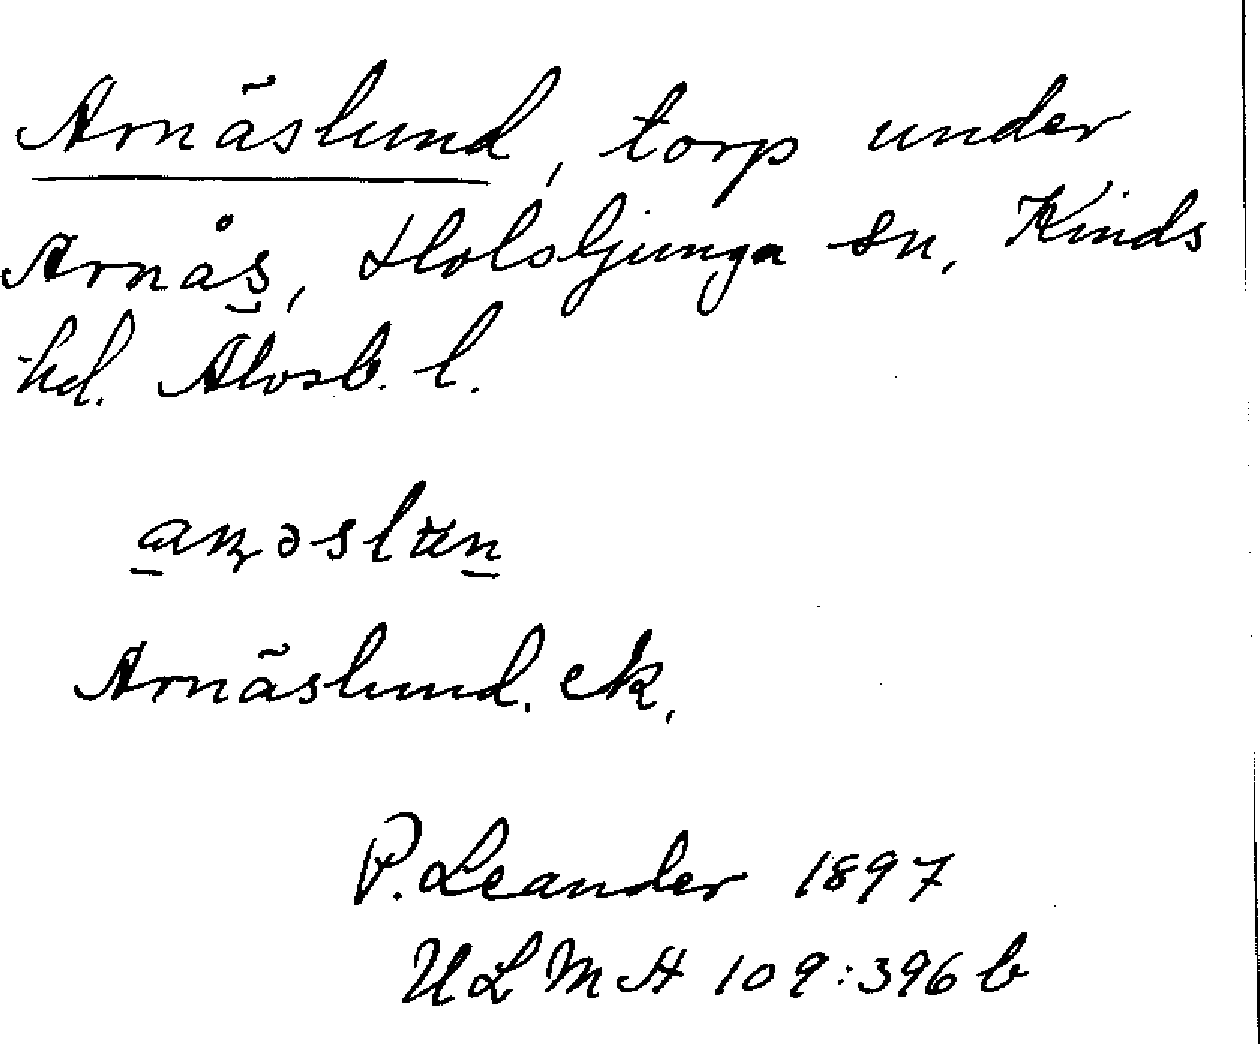 Arnäslund, torp under
Arnås, Holsljunga sn, Kinds
hd. Älvsb. l.
Arnäslund. ek.
P. Leander 1897
ULMA 109:396 b